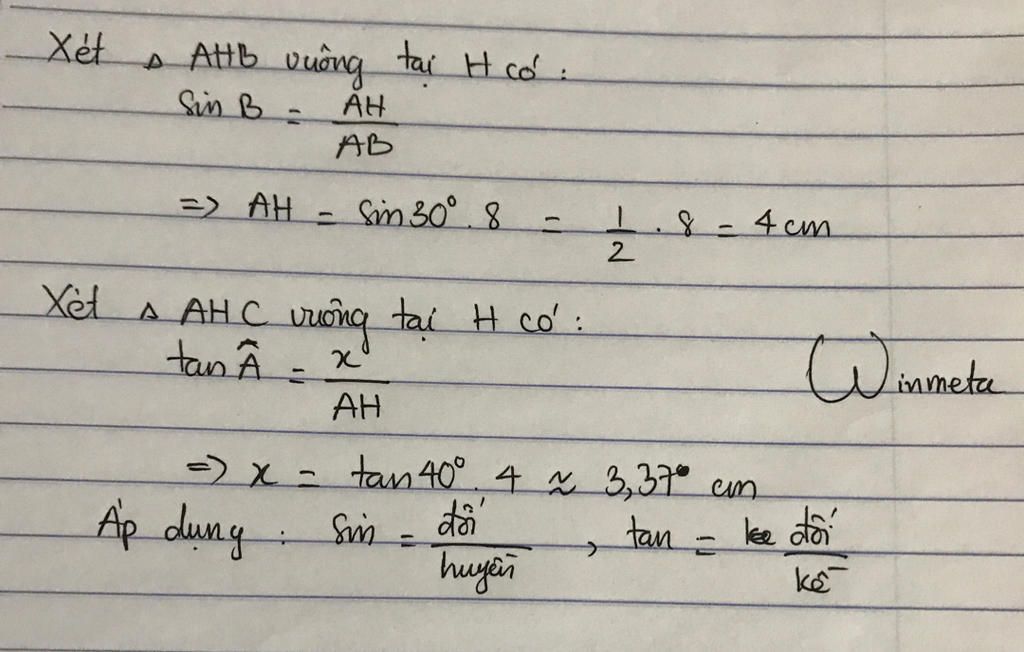 Xét Δ AHB vuông tại H có:
Sin B = AH / AB
=> AH = Sin30°. 8 = 1/2 . 8 = 4 cm
Xét Δ AHC vuông tại H có:
tan Â = x / AH
Winmeta
=> x = tan40°. 4 ≈ 3,37 cm
Áp dụng : Sin = đối / huyền , tan = đối / kề